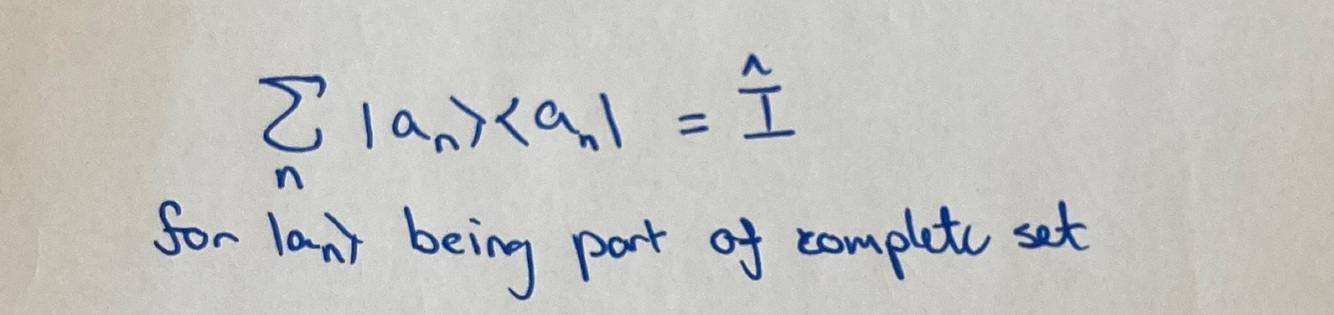 ∑ₙ |aₙ⟩⟨aₙ| = Î
for |aₙ⟩ being part of complete set